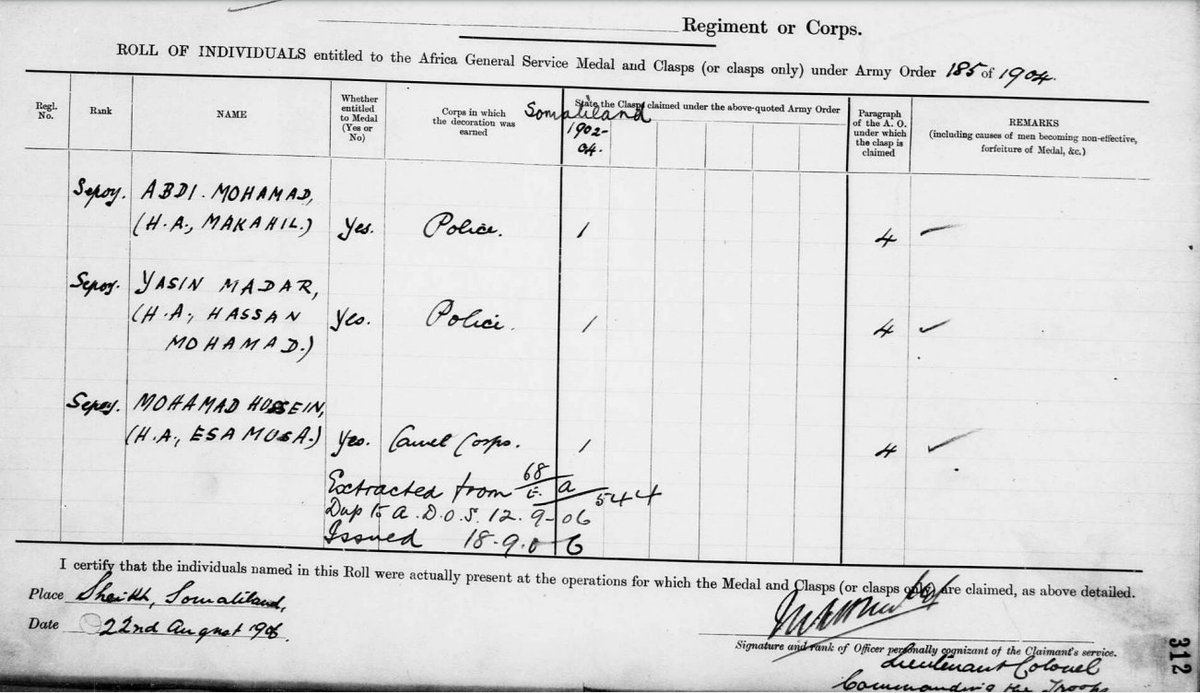 Regiment or Corps.
ROLL OF INDIVIDUALS entitled to the Africa General Service Medal and Clasps (or clasps only) under Army Order 185 of 1904.
Regl. No.
Rank
NAME
Whether entitled to Medal (Yes or No)
Corps in which the decoration was earned
State the Clasps claimed under the above-quoted Army Order
Somaliland
1902-
04.
Paragraph of the A. O. under which the clasp is claimed
REMARKS
(including causes of men becoming non-effective, forfeiture of Medal, &c.)
Sepoy. ABDI. MOHAMAD,
(H.A., MAKAHIL.) Yes. Police. 1 4
Sepoy. YASIN MADAR,
(H.A., HASSAN Yes. Police. 1 4
MOHAMAD.)
Sepoy. MOHAMAD HUSSEIN,
(H.A., ESA MUSA.) Yes. Camel Corps. 1 4
Extracted from 68/E. a/544
Dup to A.D.O.S. 12. 9-06
Issued 18-9.06
I certify that the individuals named in this Roll were actually present at the operations for which the Medal and Clasps (or clasps only) are claimed, as above detailed.
Place Sheikh, Somaliland,
Date 22nd August 1906.
Signature and rank of Officer personally cognizant of the Claimant's service.
Lieutenant Colonel
Commanding the Troops
312